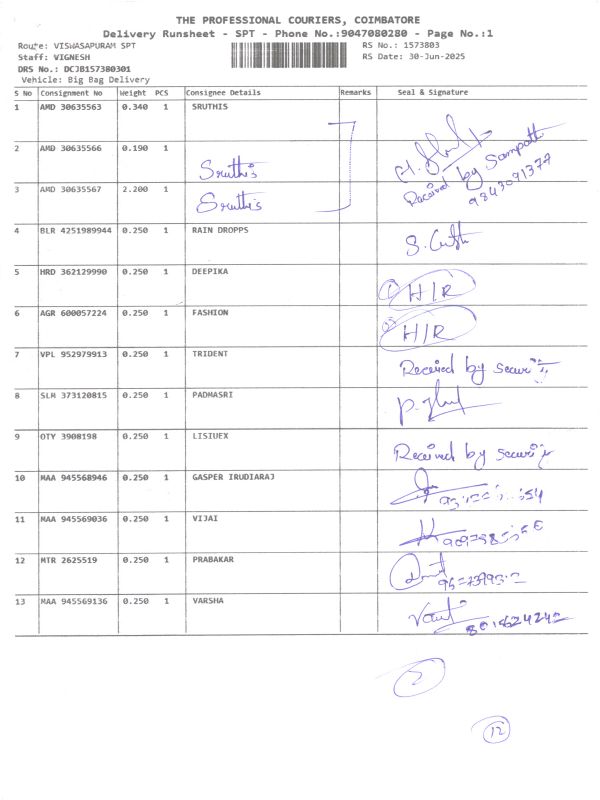 THE PROFESSIONAL COURIERS, COIMBATORE
Delivery Runsheet - SPT - Phone No.:9047080280 - Page No.:1
Route: VISWASAPURAM SPT RS No.: 1573803
Staff: VIGNESH RS Date: 30-Jun-2025
DRS No.: DCJB157380301
Vehicle: Big Bag Delivery
S No Consignment No Weight PCS Consignee Details Remarks Seal & Signature
1 AMD 30635563 0.340 1 SRUTHIS
2 AMD 30635566 0.190 1 Sruthis
3 AMD 30635567 2.200 1 Sruthis
Received by Sampath
9843091377
4 BLR 4251989944 0.250 1 RAIN DROPPS
5 HRD 362129990 0.250 1 DEEPIKA H/R
6 AGR 600057224 0.250 1 FASHION H/R
7 VPL 952979913 0.250 1 TRIDENT Received by
8 SLM 373120815 0.250 1 PADMASRI
9 OTY 3908198 0.250 1 LISIUEX Received by
10 MAA 945568946 0.250 1 GASPER IRUDIARAJ
11 MAA 945569036 0.250 1 VIJAI
12 MTR 2625519 0.250 1 PRABAKAR
13 MAA 945569136 0.250 1 VARSHA
2
12